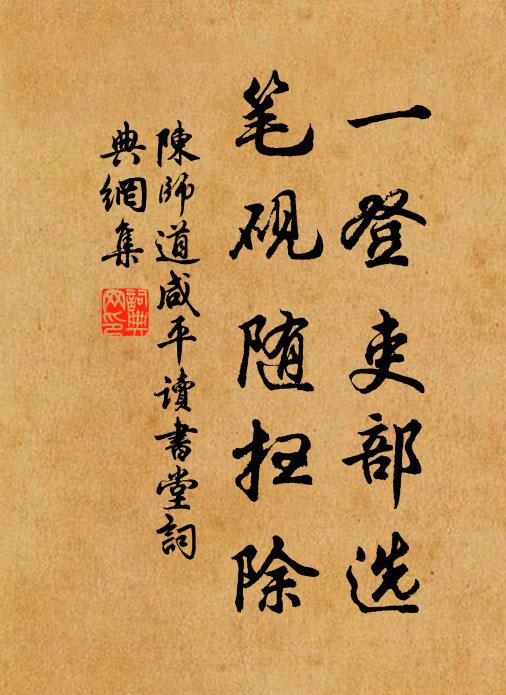 一登吏部选
笔砚随扫除
陳師道咸平讀書堂詞
典網集
詞典
网印